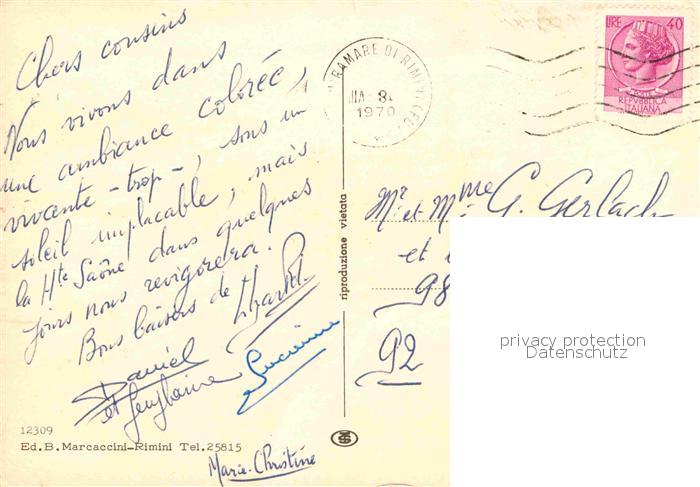 Chers cousins
Nous vivons dans
une ambiance colorée,
vivante - trop -, sous un
soleil implacable, mais
la Hte Saône dans quelques
jours nous revigorera.
Bons baisers de
Daniel
et Ghyslaine Lucienne
Marie-Christine
12309
Ed.B.Marcaccini-Rimini Tel.25815
riproduzione vietata
RAMARE DI RIMINI
1970
LIRE 40
REPVBBLICA
ITALIANA
Mr et Mme G. Gerlach
et
98
92
privacy protection
Datenschutz